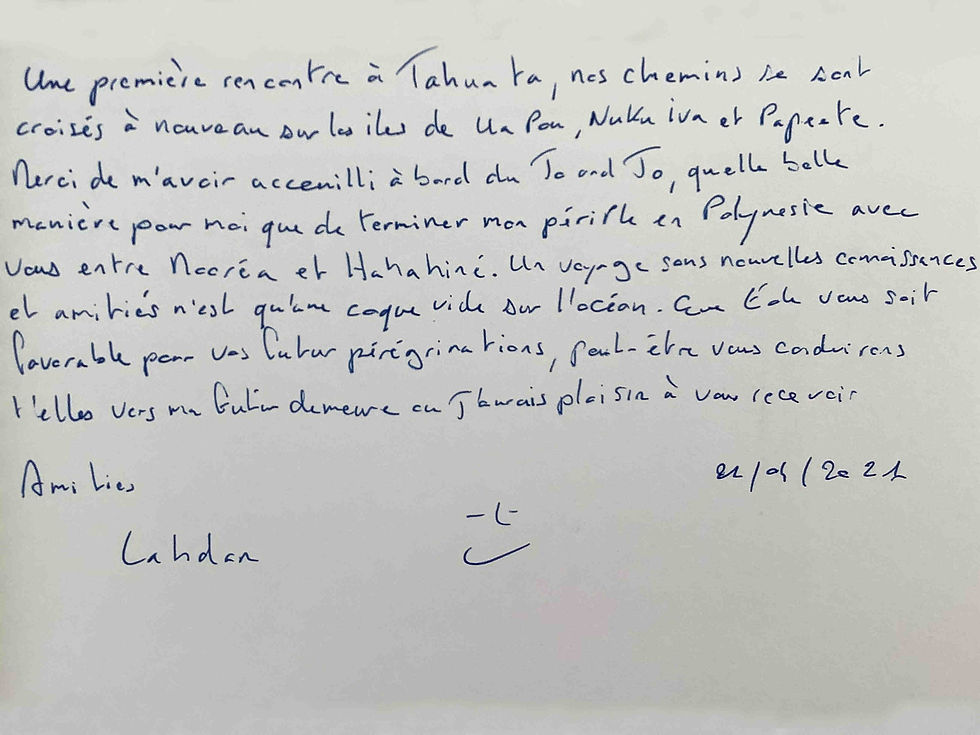 Une première rencontre à Tahuata, nos chemins se sont
croisés à nouveau sur les iles de Ua Pou, Nuku iva et Papeete.
Merci de m'avoir accueilli à bord du Jo and Jo, quelle belle
manière pour moi que de terminer mon périple en Polynesie avec
vous entre Mooréa et Hahahiné. Un voyage sans nouvelles connaissances
et amitiés n'est qu'une coque vide sur l'océan. Que Éole vous soit
favorable pour vos futur pérégrinations, peut-être vous conduirons
t'elles vers ma futur demeure ou J'aurais plaisir à vous recevoir
Amities
/2021